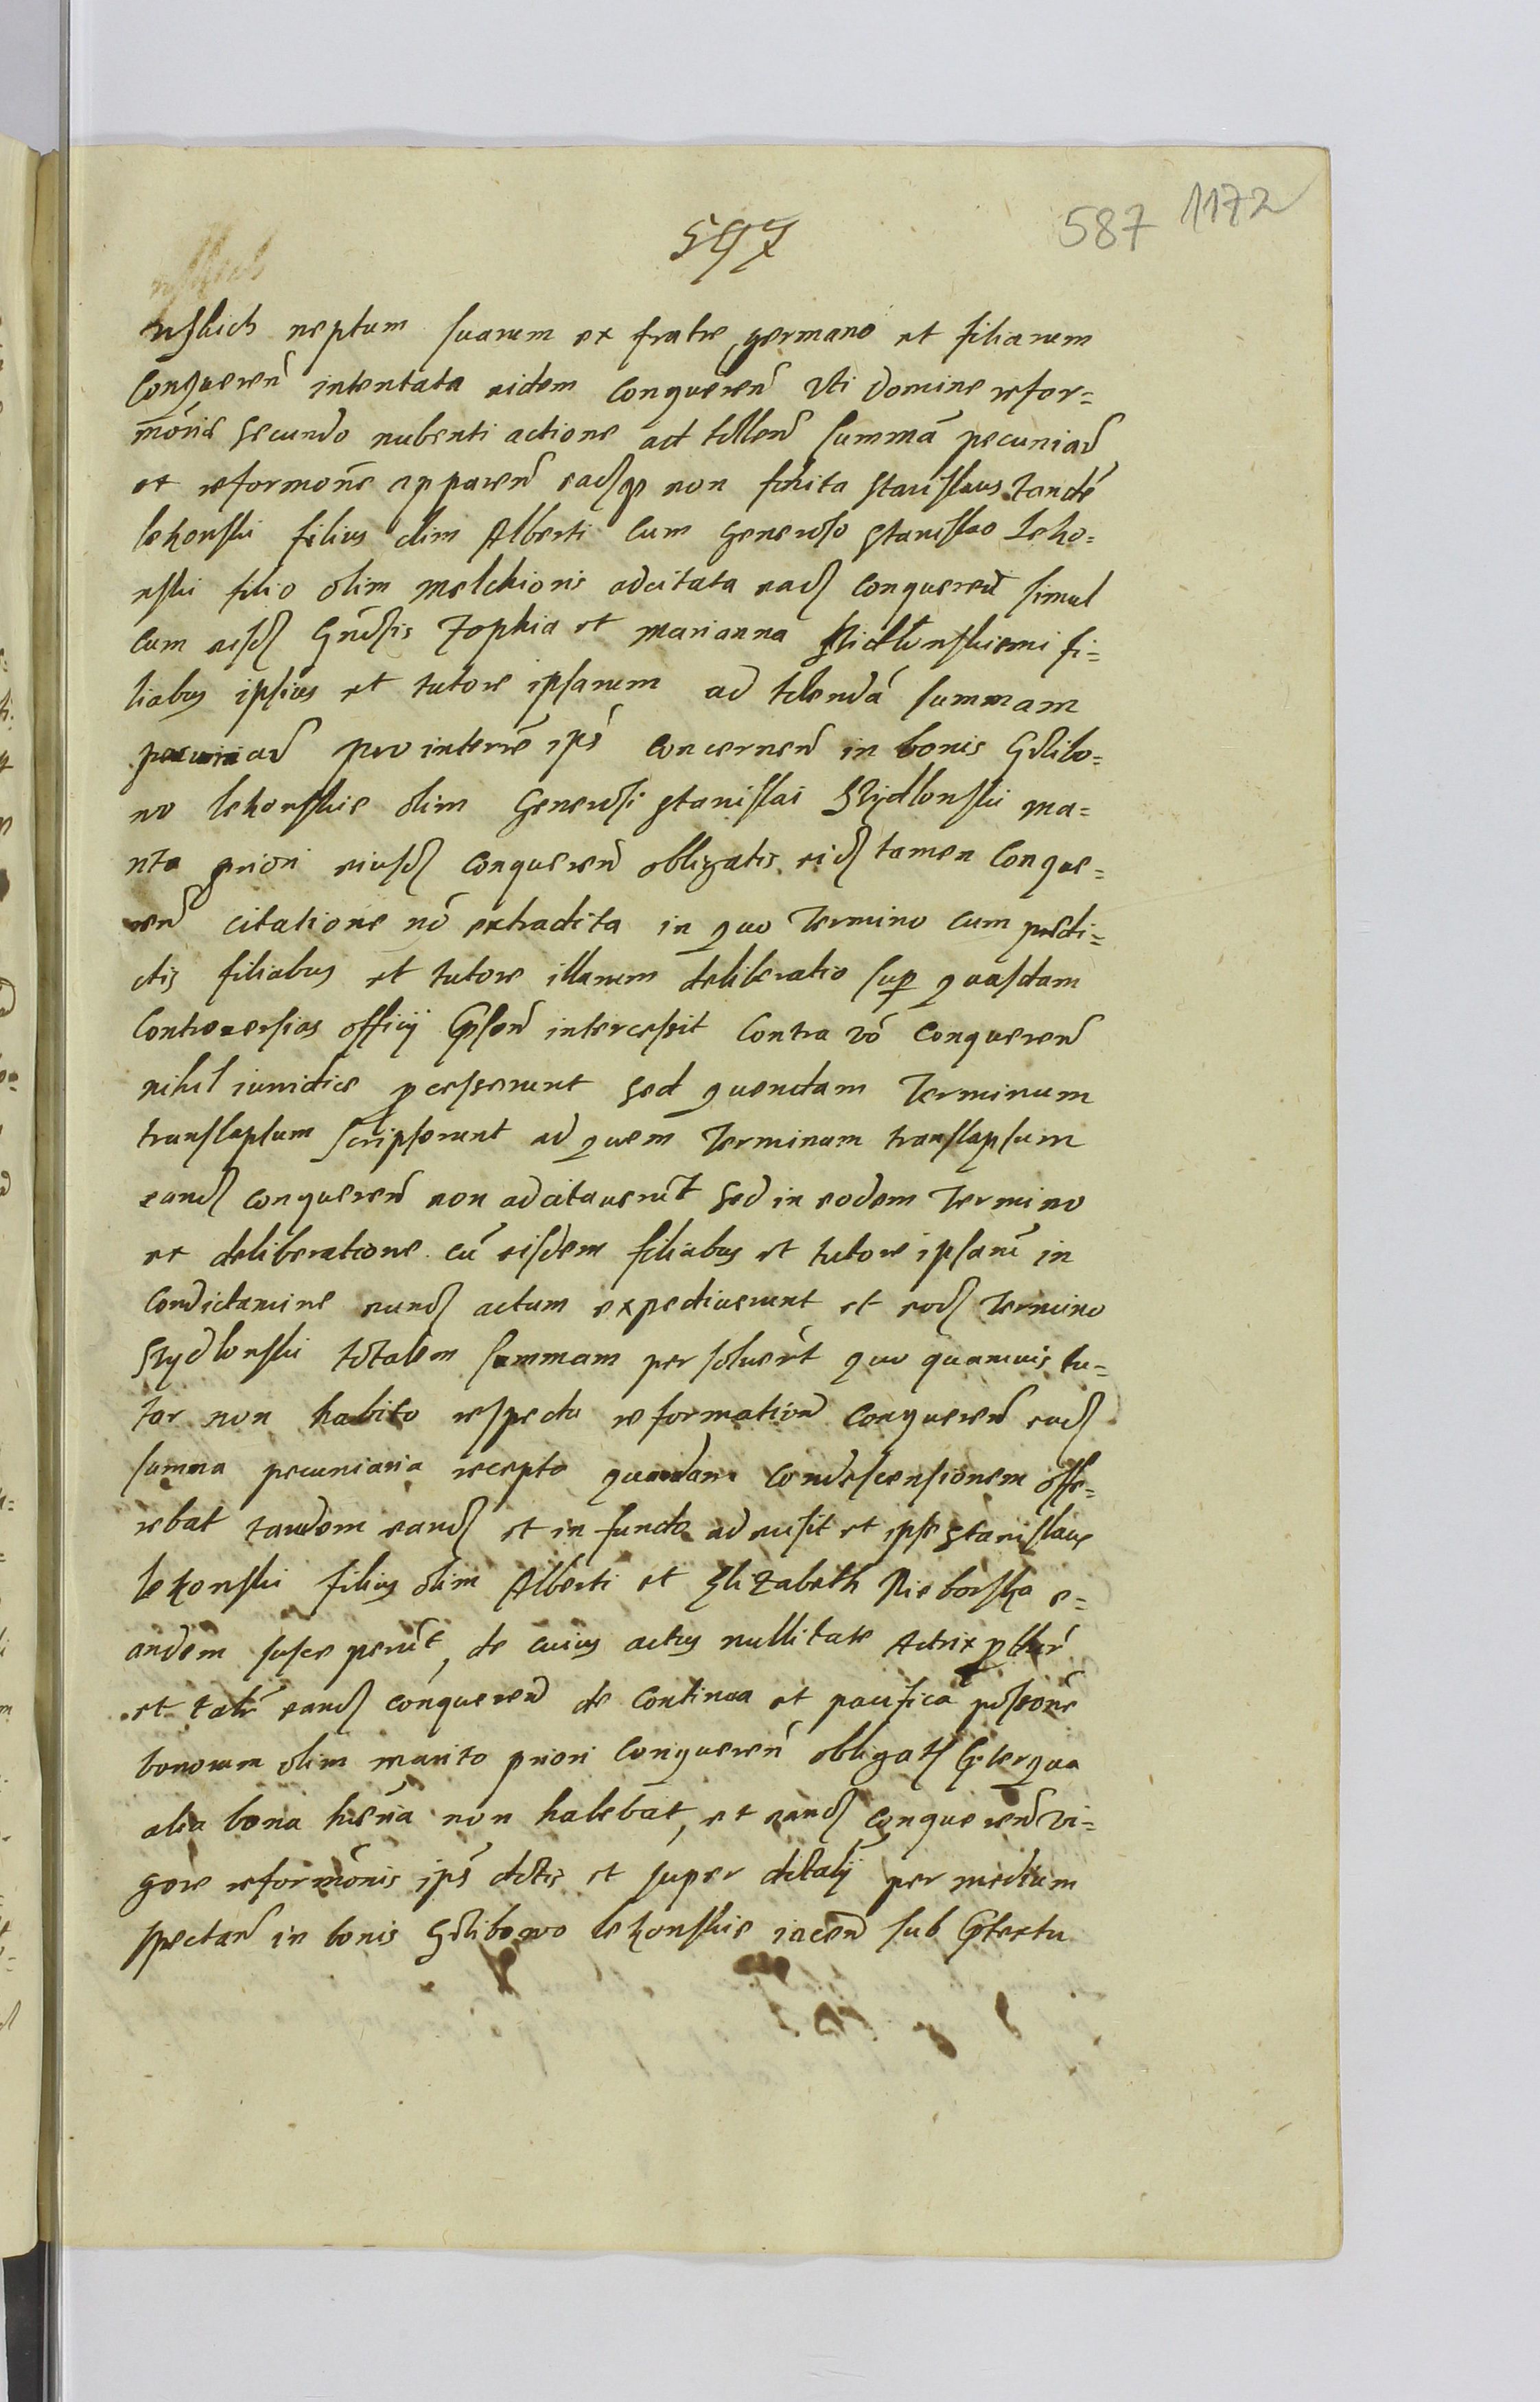 587 1172
597
nskich neptum suarum ex fratre germano et filiarum
Conqueren̄ intentata eidem conqueren̄ uti domine refor=
mōnis secundo nubenti actione ad tollen̄ summā pecuniar̄
et reformōne apparen̄ eadq̄ non finita Stanislaus tandē
lekonski filius olim Alberti cum Generoso Stanislao Leko=
nski filio olim Melchioris adcitata ead conqueren̄ simul
cum eisd Gn̄osis Zophia et Marianna fi=
liabus ipsius et tutore ipsarum ad tolendā summam
pecuniar̄ pro interēe ip̄s concernen̄ in bonis Golibo=
wo lekonskie olim Generosi Stanislai Szydlonski ma=
rito priori eiusd conqueren̄ obligatis eid tamen Conque=
ren̄ citatione nō extradita in quo Termino cum predi=
ctis filiabus et tutore illarum deliberatio sup quasdam
Controversias officij intercessit Contra vō conqueren̄
nihil iuridice pcesserunt sed quendam Terminum
translapsum scripserunt ad quem Terminum translapsum
eand conqueren̄ non adcitaverūt sed in eodem Termino
et deliberatione cū eisdem filiabus et tutore ipsarū in
Condictamine eund actum expediverunt et eod Termino
Szydlonski totalem summam persolverūt quo quamvis tu=
tor non habito respectu reformation̄ conqueren̄ ead
summa pecuniaria recepta quandam Condescensionem offe=
rebat tandem eand et in fundo admisit et ipse Stanislaus
lekonski filius olim Alberti et Elizabeth Nieborska e=
andem susceperūt, de cuius actus nullitate Actrix
et talr̄ eand conqueren̄ de continua et pacifica possōne
bonorum olim marito priori conqueren̄ obligat
alia bona hn̄ria non habebat, et eand conqueren̄ vi=
gore reformōnis ip̄s dotis et super dotalij per medium
spectan̄ in bonis Golibowo lekonskie iacen̄ sub